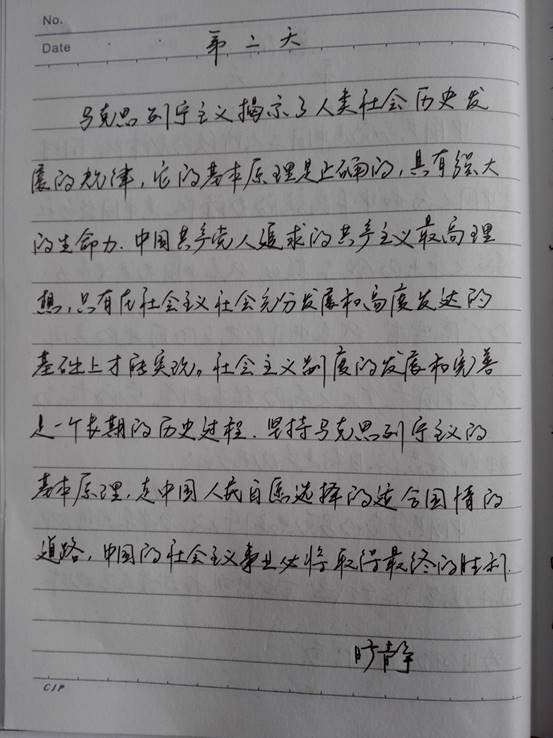 No.
Date
第二天
马克思列宁主义揭示了人类社会历史发
展的规律,它的基本原理是正确的,具有强大
的生命力.中国共产党人追求的共产主义最高理
想,只有在社会主义社会充分发展和高度发达的
基础上才能实现。社会主义制度的发展和完善
是一个长期的历史过程.坚持马克思列宁主义的
基本原理,走中国人民自愿选择的适合国情的
道路,中国的社会主义事业必将取得最终的胜利.
CIP